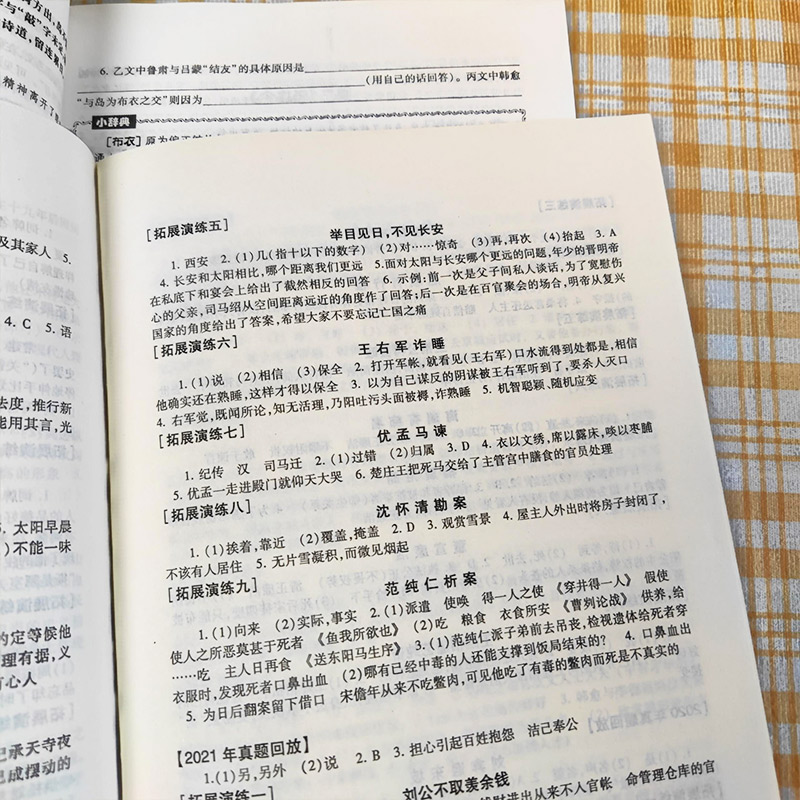 6. 乙文中鲁肃与吕蒙“结友”的具体原因是
(用自己的话回答)。丙文中韩愈
“与岛为布衣之交”则因为
小辞典
及其家人 5.
4. C 5. 语
去度,推行新
能用其言,光
5. 太阳早晨
)不能一味
的定等候他
理有据,义
有心人
记承天寺夜
已成摆动的
[拓展演练五]
举目见日,不见长安
1. 西安 2. (1)几(指十以下的数字) (2)对……惊奇 (3)再,再次 (4)抬起 3. A
4. 长安和太阳相比,哪个距离我们更远 5.面对太阳与长安哪个更远的问题,年少的晋明帝
在私底下和宴会上给出了截然相反的回答 6. 示例:前一次是父子间私人谈话,为了宽慰伤
心的父亲,司马绍从空间距离远近的角度作了回答;后一次是在百官聚会的场合,明帝从复兴
国家的角度给出了答案,希望大家不要忘记亡国之痛
[拓展演练六]
王右军诈睡
1. (1)说 (2)相信 (3)保全 2. 打开军帐,就看见(王右军)口水流得到处都是,相信
他确实还在熟睡,这样才得以保全 3. 以为自己谋反的阴谋被王右军听到了,要杀人灭口
4. 右军觉,既闻所论,知无活理,乃阳吐污头面被褥,诈熟睡 5. 机智聪颖、随机应变
[拓展演练七]
优孟马谏
1. 纪传 汉 司马迁 2. (1)过错 (2)归属 3. D 4. 衣以文绣,席以露床,啖以枣脯
5. 优孟一走进殿门就仰天大哭 6. 楚庄王把死马交给了主管宫中膳食的官员处理
[拓展演练八]
沈怀清勘案
1. (1)挨着,靠近 (2)覆盖,掩盖 2. D 3. 观赏雪景 4. 屋主人外出时将房子封闭了,
不该有人居住 5. 无片雪凝积,而微见烟起
[拓展演练九]
范纯仁析案
1. (1)向来 (2)实际,事实 2. (1)派遣 使唤 得一人之使 《穿井得一人》 假使
使人之所恶莫甚于死者 《鱼我所欲也》 (2)吃 粮食 衣食所安 《曹刿论战》 供养,给
……吃 主人日再食 《送东阳马生序》 3. (1)范纯仁派子弟前去吊丧,检视遗体给死者穿
衣服时,发现死者口鼻出血 (2)哪有已经中毒的人还能支撑到饭局结束的? 4. 口鼻血出
5. 为日后翻案留下借口 宋儋年从来不吃鳖肉,可见他吃了有毒的鳖肉而死是不真实的
【2021年真题回放】
1. (1)另,另外 (2)说 2. B 3. 担心引起百姓抱怨 洁己奉公
[拓展演练一]
刘公不取羡余钱
钱财进出从来不入官帐 命管理仓库的官